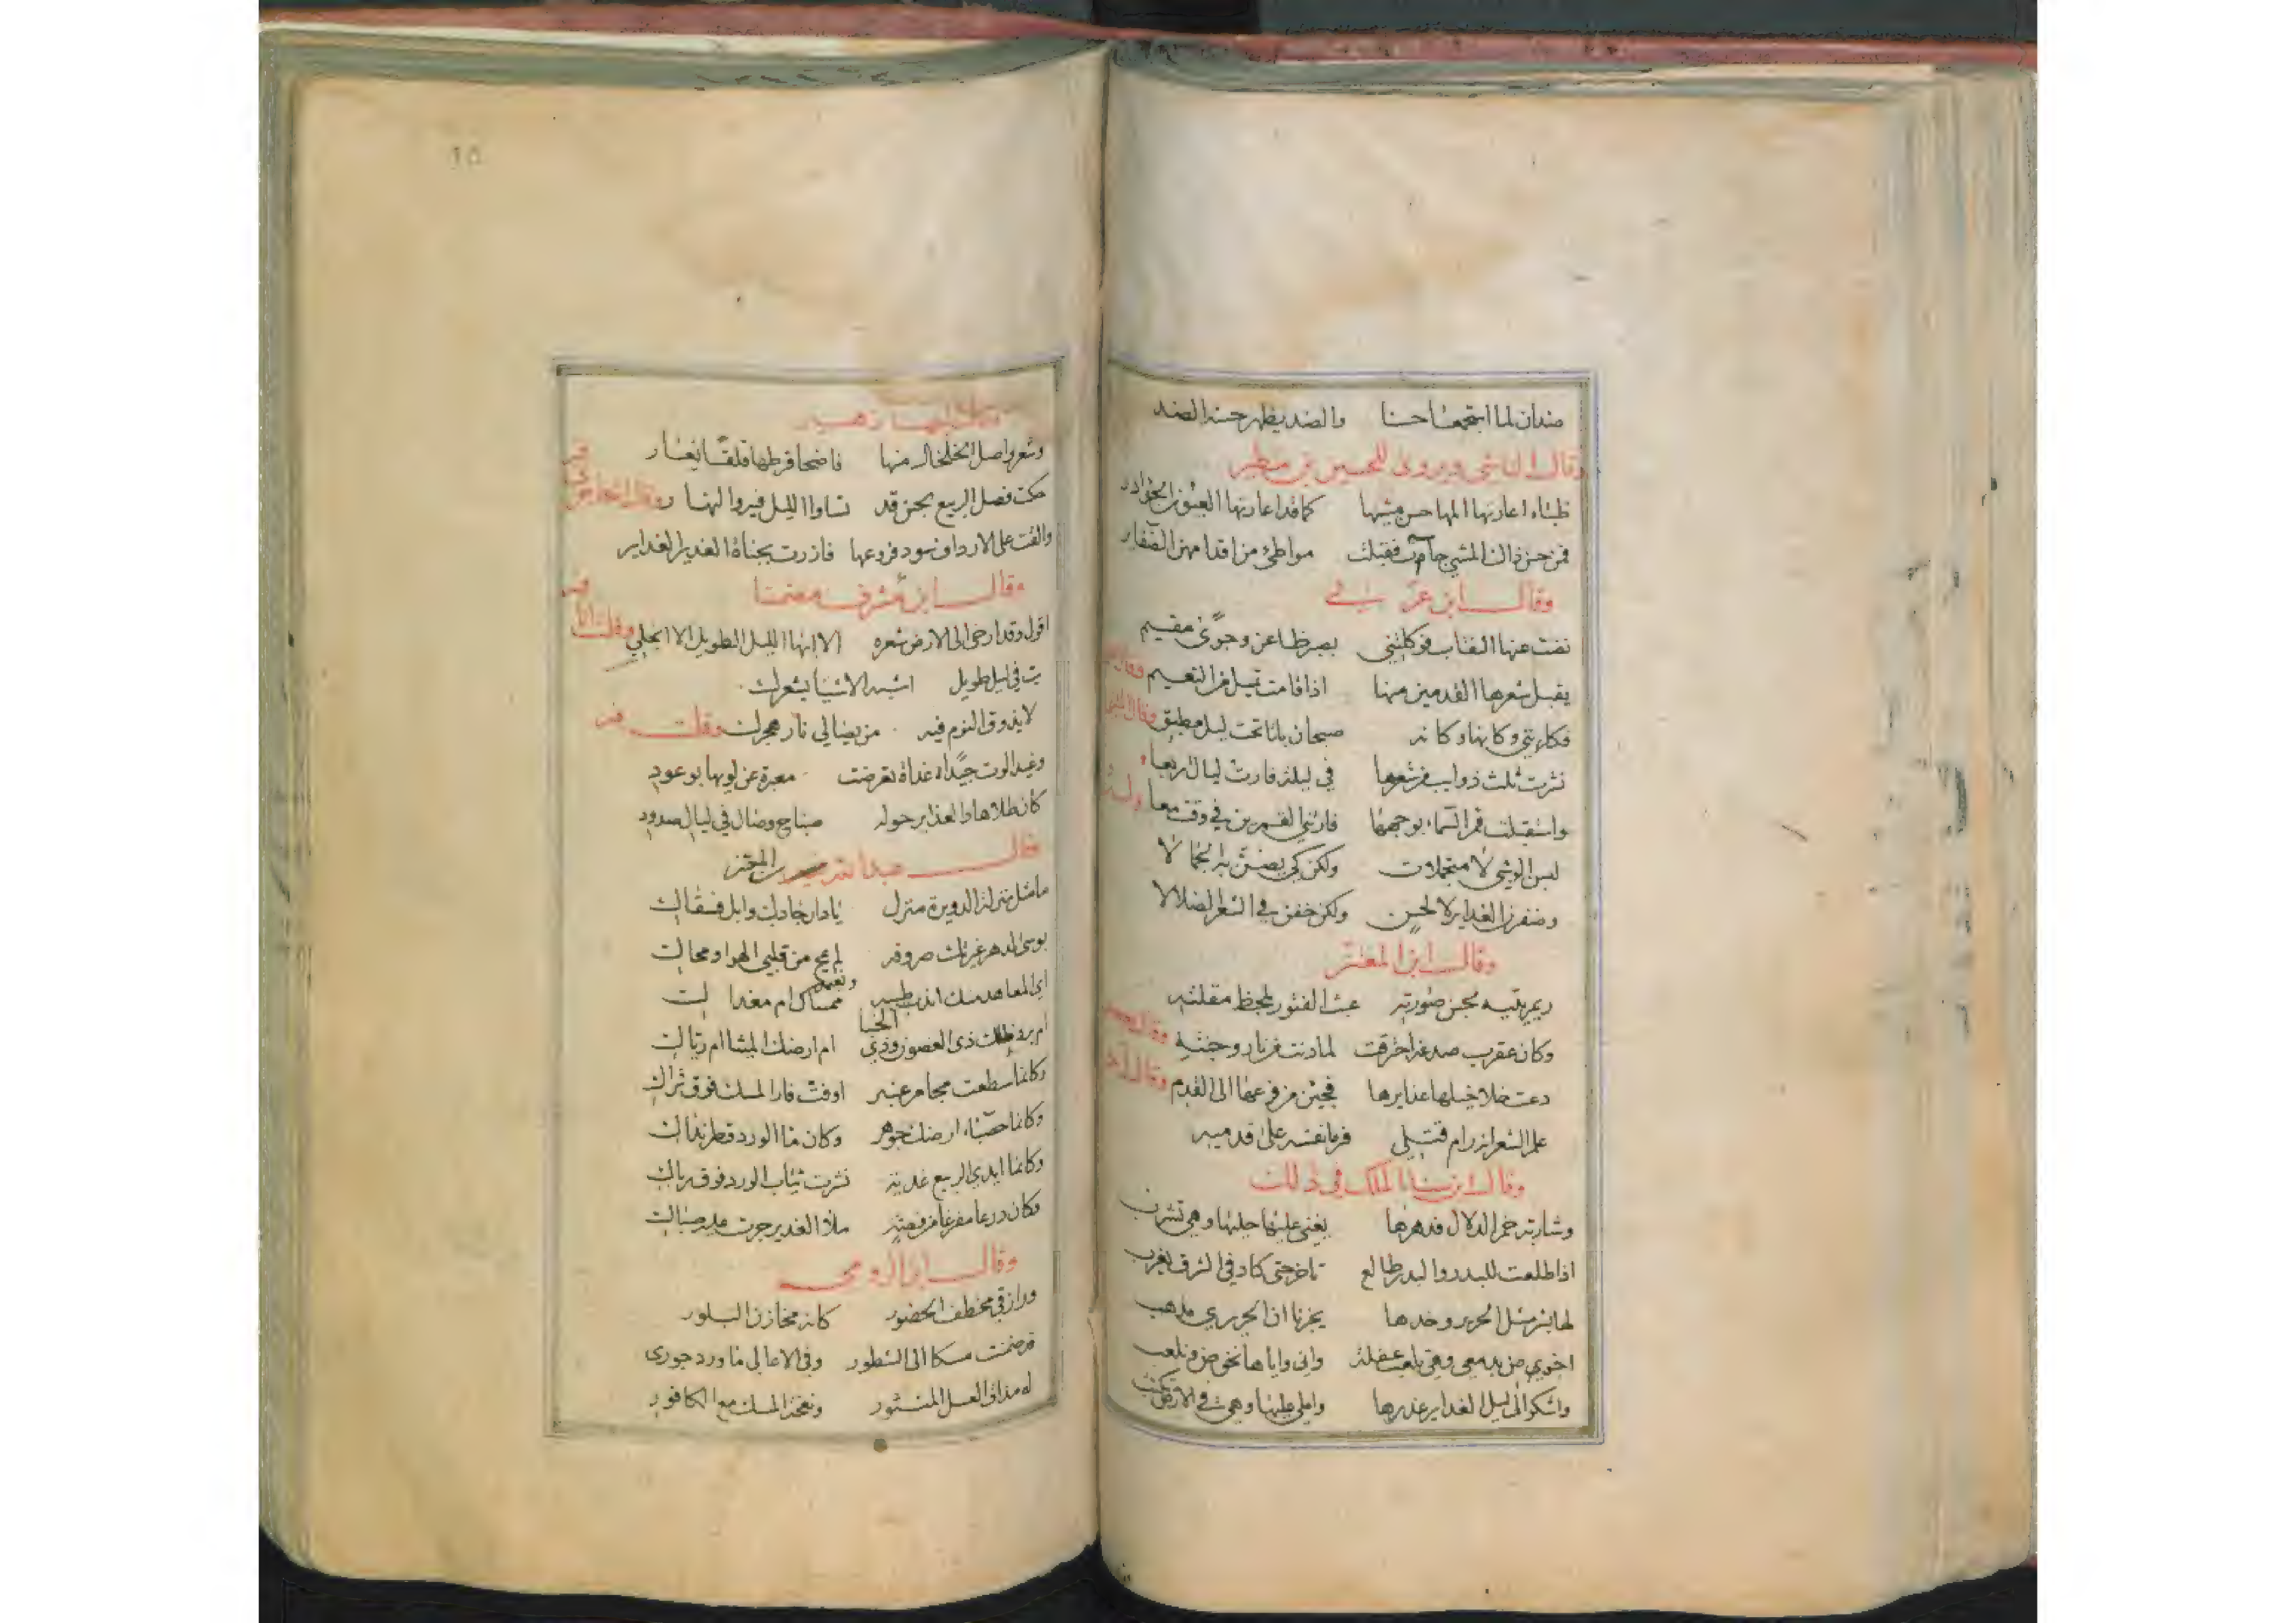 ضدان لما استجمعا حسنا والضد يظهر حسنه الضد
وقال الناشي ويروى للحسين بن مطير
ظباء اعارتها المها حسن مشيها كما قد اعارتها العيون الجآذر
فمن حسن ذاك المشي جاءت فقبلت مواطئ من اقدامهن الضفاير
وقال ابن
نضت عنها النقاب فوكلتني بصبر ظاعن وجوى مقيم
يقبل شعرها القدمين منها اذا قامت تميل من النعيم
فكانني وكانها وكانه صبحان باتا تحت ليل مطبق
نثرت ثلث ذوايب من شعرها في ليلة فارت ليالي اربعا
واستقبلت قمر السماء بوجهها فارتني القمرين في وقت معا
لبسن الوشي لا متجملات ولكن كي يصن به الجمالا
وضفرن الغداير لا لحسن ولكن خفن في الشعر الضلالا
وقال ابن المعتز
ريم يتيه بحسن صورته عبث الفتور بلحظ مقلته
وكان عقرب صدغه احترقت لما دنت من نار وجنته
دعت خلاخيلها غدايرها فجئن من فرعها الى القدم
علم الشعر انه رام قتلي فرمى نفسه على قدميه
وقال ابن سنا الملك في ذلك
وشاربة خمر الدلال فدهرها يغني عليها حليها وهي تشرب
اذا طلعت للبدر والبدر طالع تاخر حتى كاد في الشرق يغرب
لها بشر مثل الحرير وخدها يخبرنا ان الحريري مذهب
وهي نخوض ونلعب
واشكو الى ليل الغداير غدرها واملي عليها وهي في الارض تكتب
وقال البها زهير
وشعر واصل الخلخال منها فاضحى قرطها قلقا يغار
حكت فصل الربيع بحسن قد تساوى الليل فيه والنهار
والقت على الارداف سود فروعها
وقال ابن مشرف مضمنا
اقول وقد ارخى الى الارض شعره الا ايها الليل الطويل الا انجلي
بت في ليل طويل اشبه الاشيا بشعرك
لا يذوق النوم فيه من يضالي نار هجرك وقلت
وغيد الوت جيدا غداة تعرضت
كان طلاها والغداير حوله صباح وصال في ليالي صدود
وقال عبد الله بن المعتز
ما مثل منزلة الدويرة منزل يا دار جادك وابل فسقاك
بوسى لدهر غيرتك صروفه لم يمح من قلبي الهوا ومحاك
اي المعاهد منك اندب طيبه ممساك ام مغداك
ام برد ظلك ذي الغصون وذي الجنا ام ارضك الميثا ام رياك
وكانما سطعت مجامر عنبر او فت فار المسك فوق ثراك
وكانما حصباء ارضك جوهر وكان ما الورد قطر نداك
وكانما ايدي الربيع غدية نثرت ثياب الورد فوق رباك
وكان درعا مفرغا من فضة ماء الغدير جرت عليه صباك
وقال ابن الرومي
ورازقي مخطف الخصور كانه مخازن البلور
قد ضمنت مسكا الى الشطور وفي الاعالي ما ورد جوري
له مذاق العسل المنثور ونفحة المسك مع الكافور